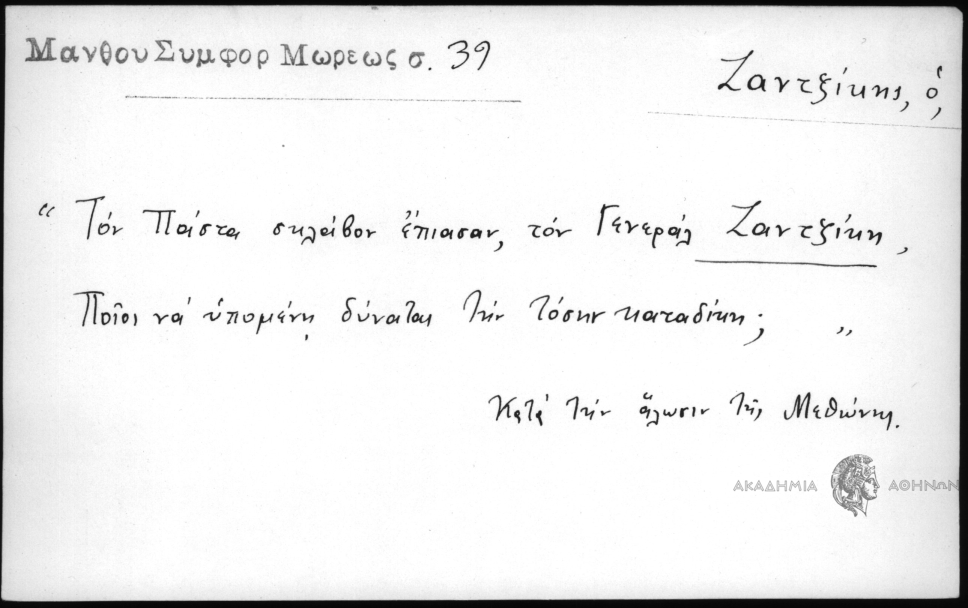 Μανθου Συμφορ Μωρεως σ. 39
Ζαντζίκης, ὁ,
“ Τόν Πάστα σκλάβον ἔπιασαν, τόν Γενεράλ Ζαντζίκη,
Ποῖοι νά ὑπομένῃ δύναται τήν τόσην καταδίκη; „
Κατά τήν ἅλωσιν τῆς Μεθώνης.
ΑΚΑΔΗΜΙΑ ΑΘΗΝΩΝ